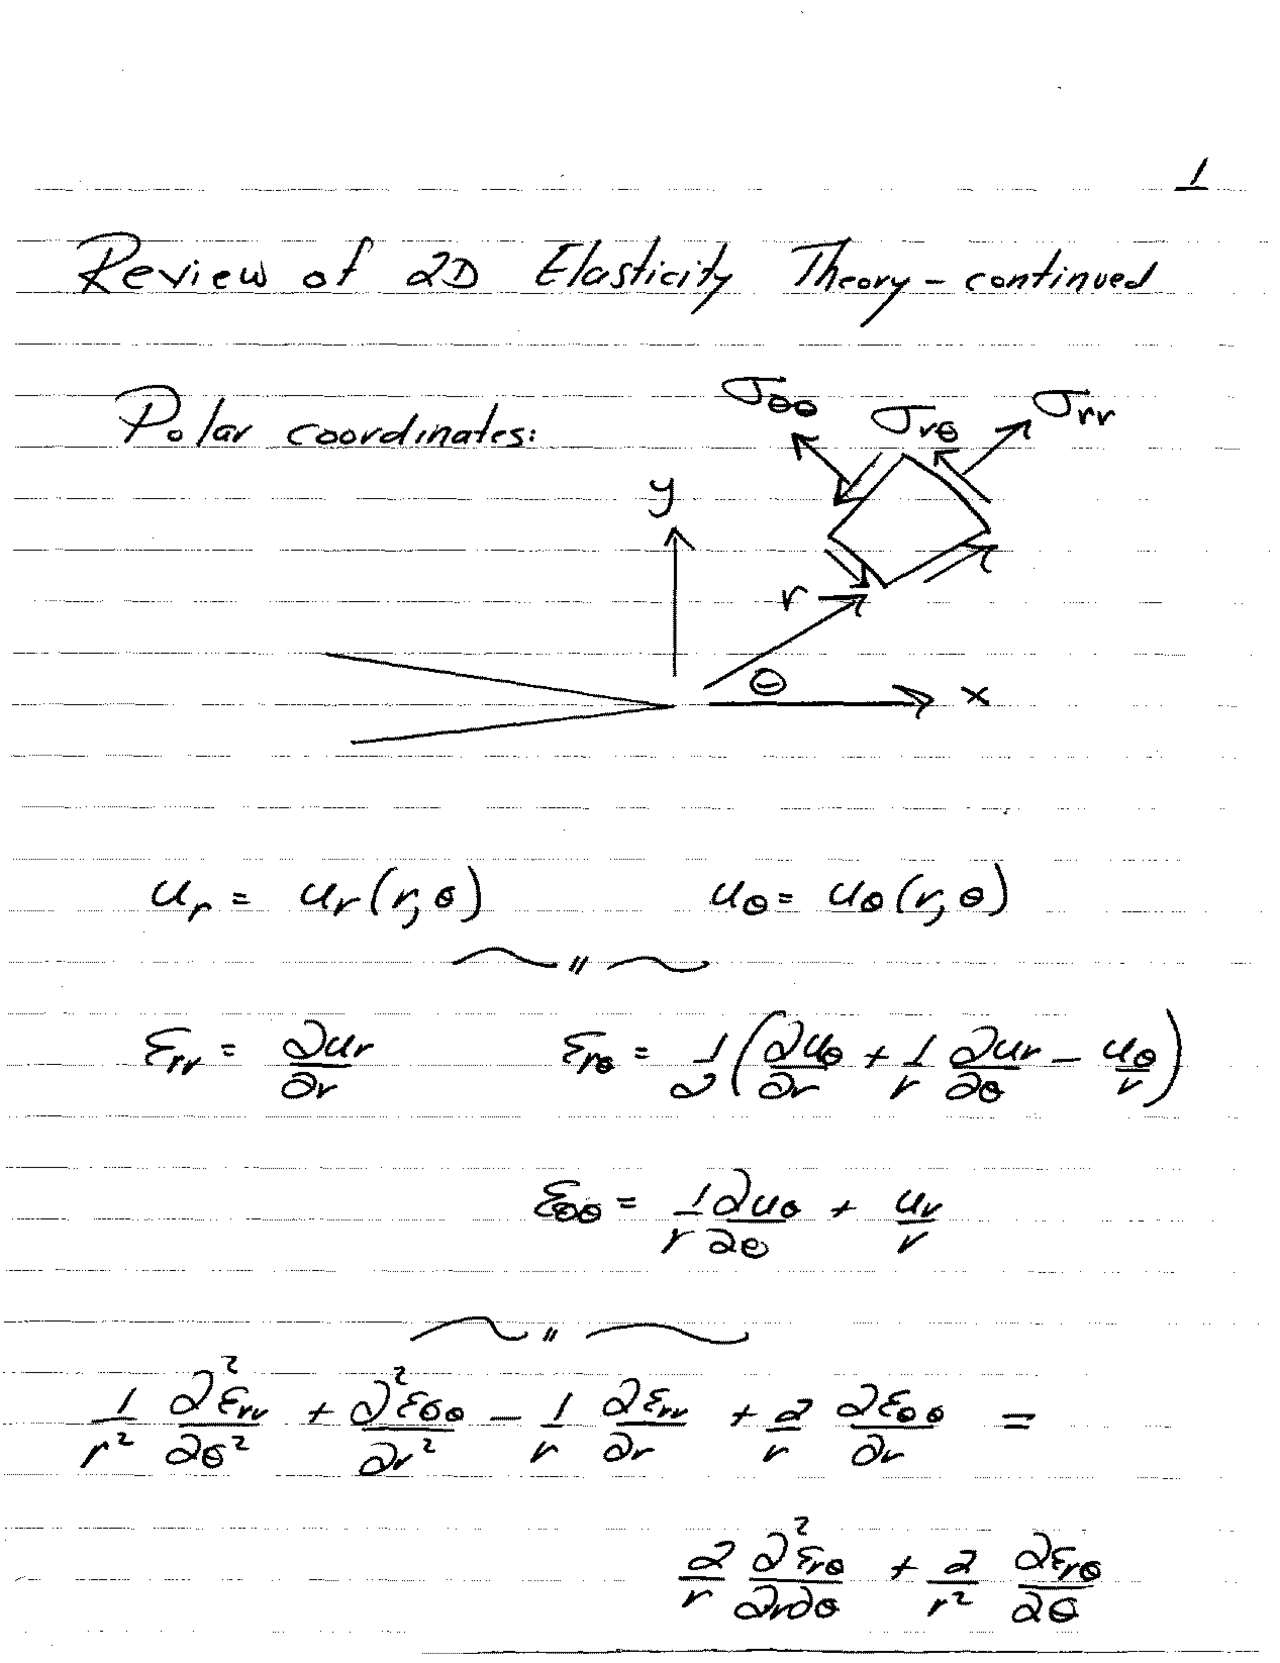 1
Review of 2D Elasticity Theory - continued
Polar coordinates:
σθθ σrθ σrr
y
r
θ
x
u_r = u_r(r,θ) u_θ = u_θ(r,θ)
"
ε_rr = ∂u_r/∂r ε_rθ = 1/2 (∂u_θ/∂r + 1/r ∂u_r/∂θ - u_θ/r)
ε_θθ = 1/r ∂u_θ/∂θ + u_r/r
"
1/r² ∂²ε_rr/∂θ² + ∂²ε_θθ/∂r² - 1/r ∂ε_rr/∂r + 2/r ∂ε_θθ/∂r =
2/r ∂²ε_rθ/∂r∂θ + 2/r² ∂ε_rθ/∂θ